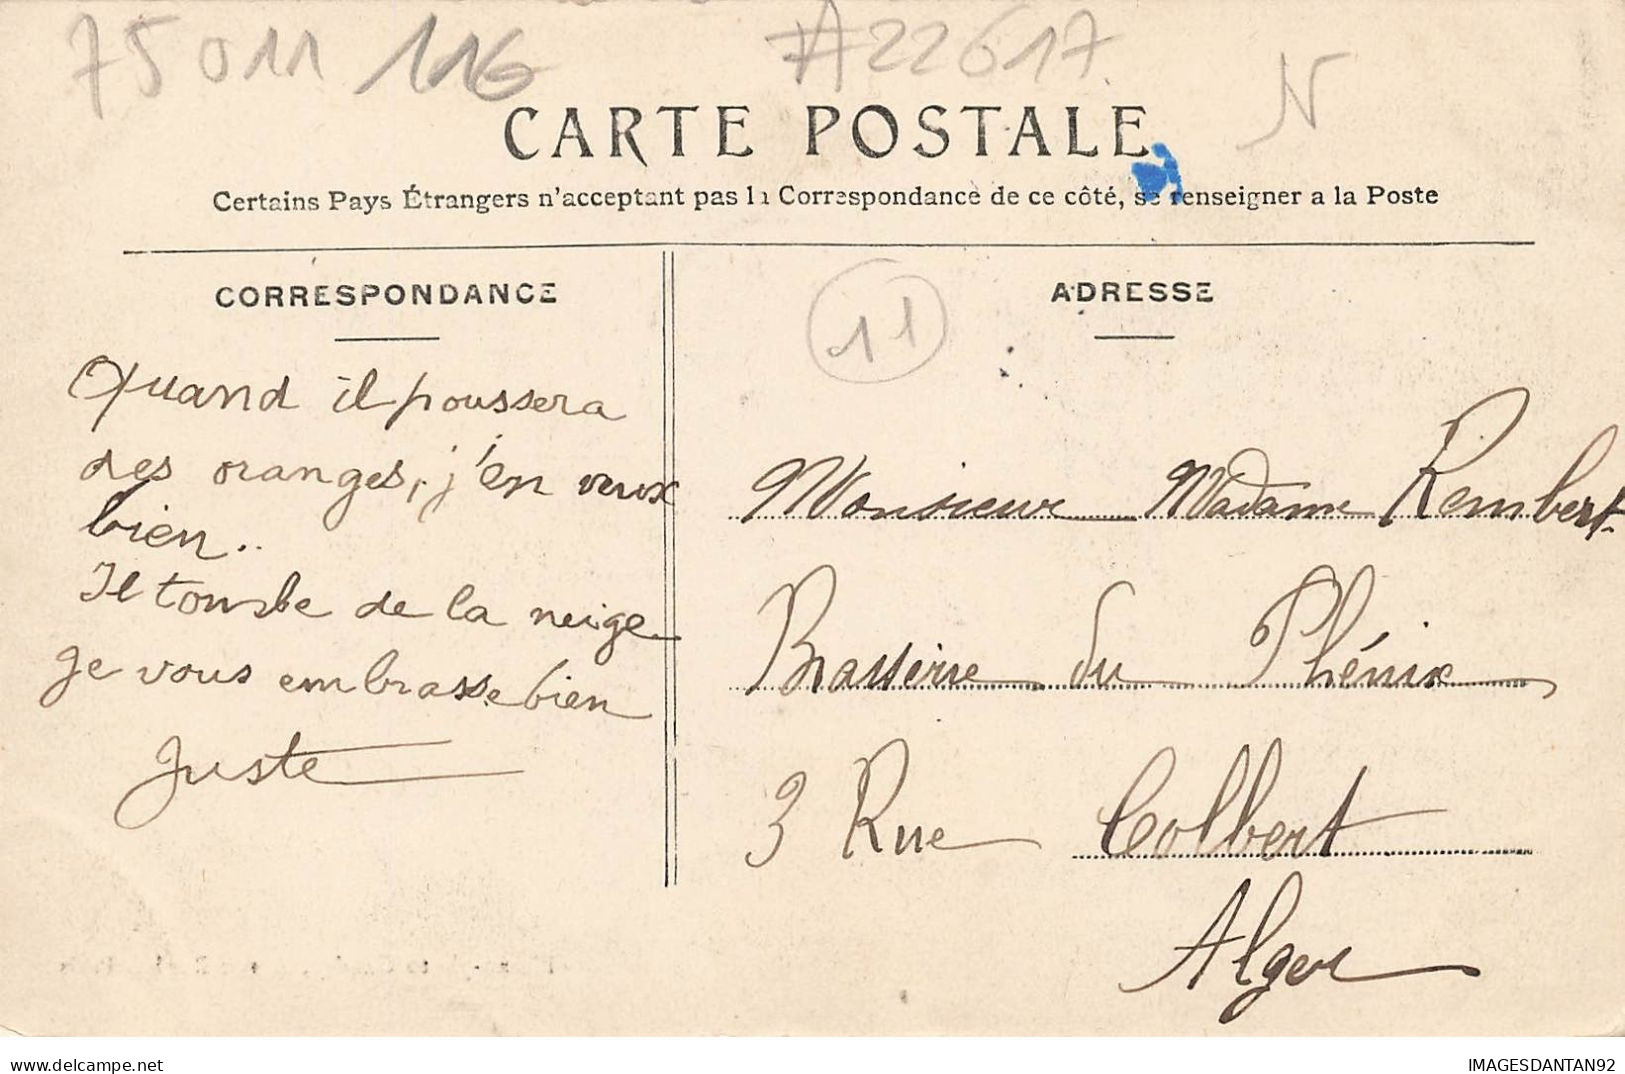 75011 116 A22617 N
CARTE POSTALE
Certains Pays Étrangers n'acceptant pas la Correspondance de ce côté, se renseigner a la Poste
CORRESPONDANCE
Quand il poussera
des oranges, j'en veux
bien..
Il tombe de la neige
Je vous embrasse bien
Juste
11
ADRESSE
Monsieur Madame Rembert
Brasserie du Phénix
3 Rue Colbert
Alger
www.delcampe.net
IMAGESDANTAN92